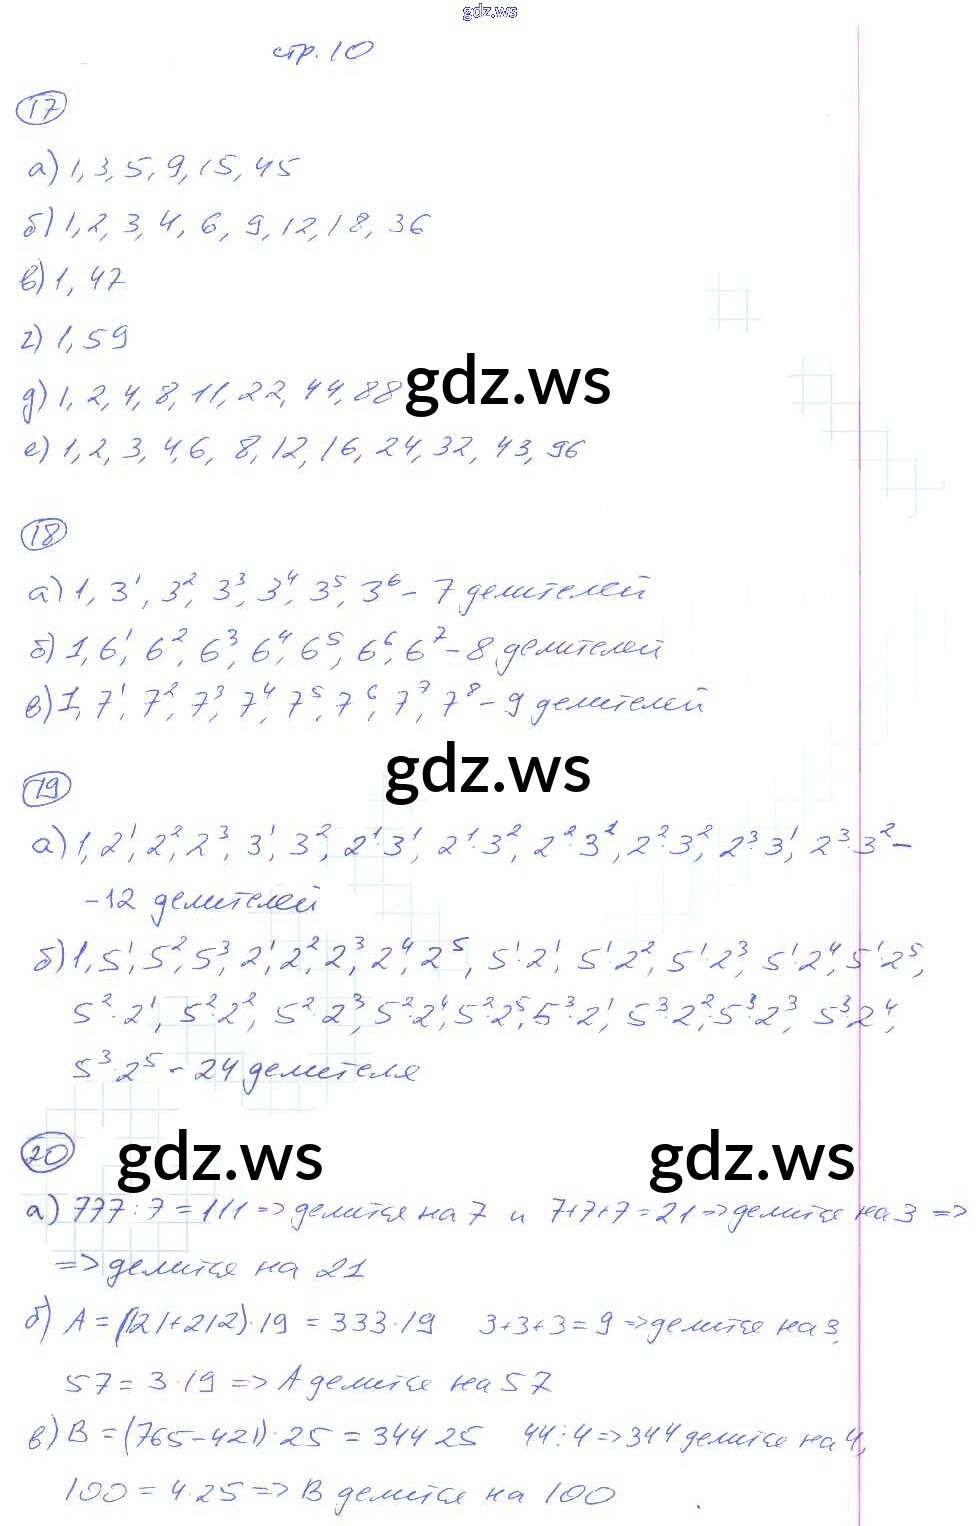 gdz.ws
стр. 10
17
а) 1, 3, 5, 9, 15, 45
б) 1, 2, 3, 4, 6, 9, 12, 18, 36
в) 1, 47
г) 1, 59
д) 1, 2, 4, 8, 11, 22, 44, 88
gdz.ws
е) 1, 2, 3, 4, 6, 8, 12, 16, 24, 32, 43, 96
18
а) 1, 3¹, 3², 3³, 3⁴, 3⁵, 3⁶ - 7 делителей
б) 1, 6¹, 6², 6³, 6⁴, 6⁵, 6⁶, 6⁷ - 8 делителей
в) 1, 7¹, 7², 7³, 7⁴, 7⁵, 7⁶, 7⁷, 7⁸ - 9 делителей
gdz.ws
19
а) 1, 2¹, 2², 2³, 3¹, 3², 2¹·3¹, 2¹·3², 2²·3¹, 2²·3², 2³·3¹, 2³·3² -
- 12 делителей
б) 1, 5¹, 5², 5³, 2¹, 2², 2³, 2⁴, 2⁵, 5¹·2¹, 5¹·2², 5¹·2³, 5¹·2⁴, 5¹·2⁵,
5²·2¹, 5²·2², 5²·2³, 5²·2⁴, 5²·2⁵, 5³·2¹, 5³·2², 5³·2³, 5³·2⁴,
5³·2⁵ - 24 делителя
20
gdz.ws gdz.ws
а) 777 : 7 = 111 => делится на 7 и 7+7+7=21 => делится на 3 =>
=> делится на 21
б) A = (121+212)·19 = 333·19 3+3+3=9 => делится на 3,
57 = 3·19 => A делится на 57
в) B = (765-421)·25 = 344·25 44:4 => 344 делится на 4,
100 = 4·25 => B делится на 100